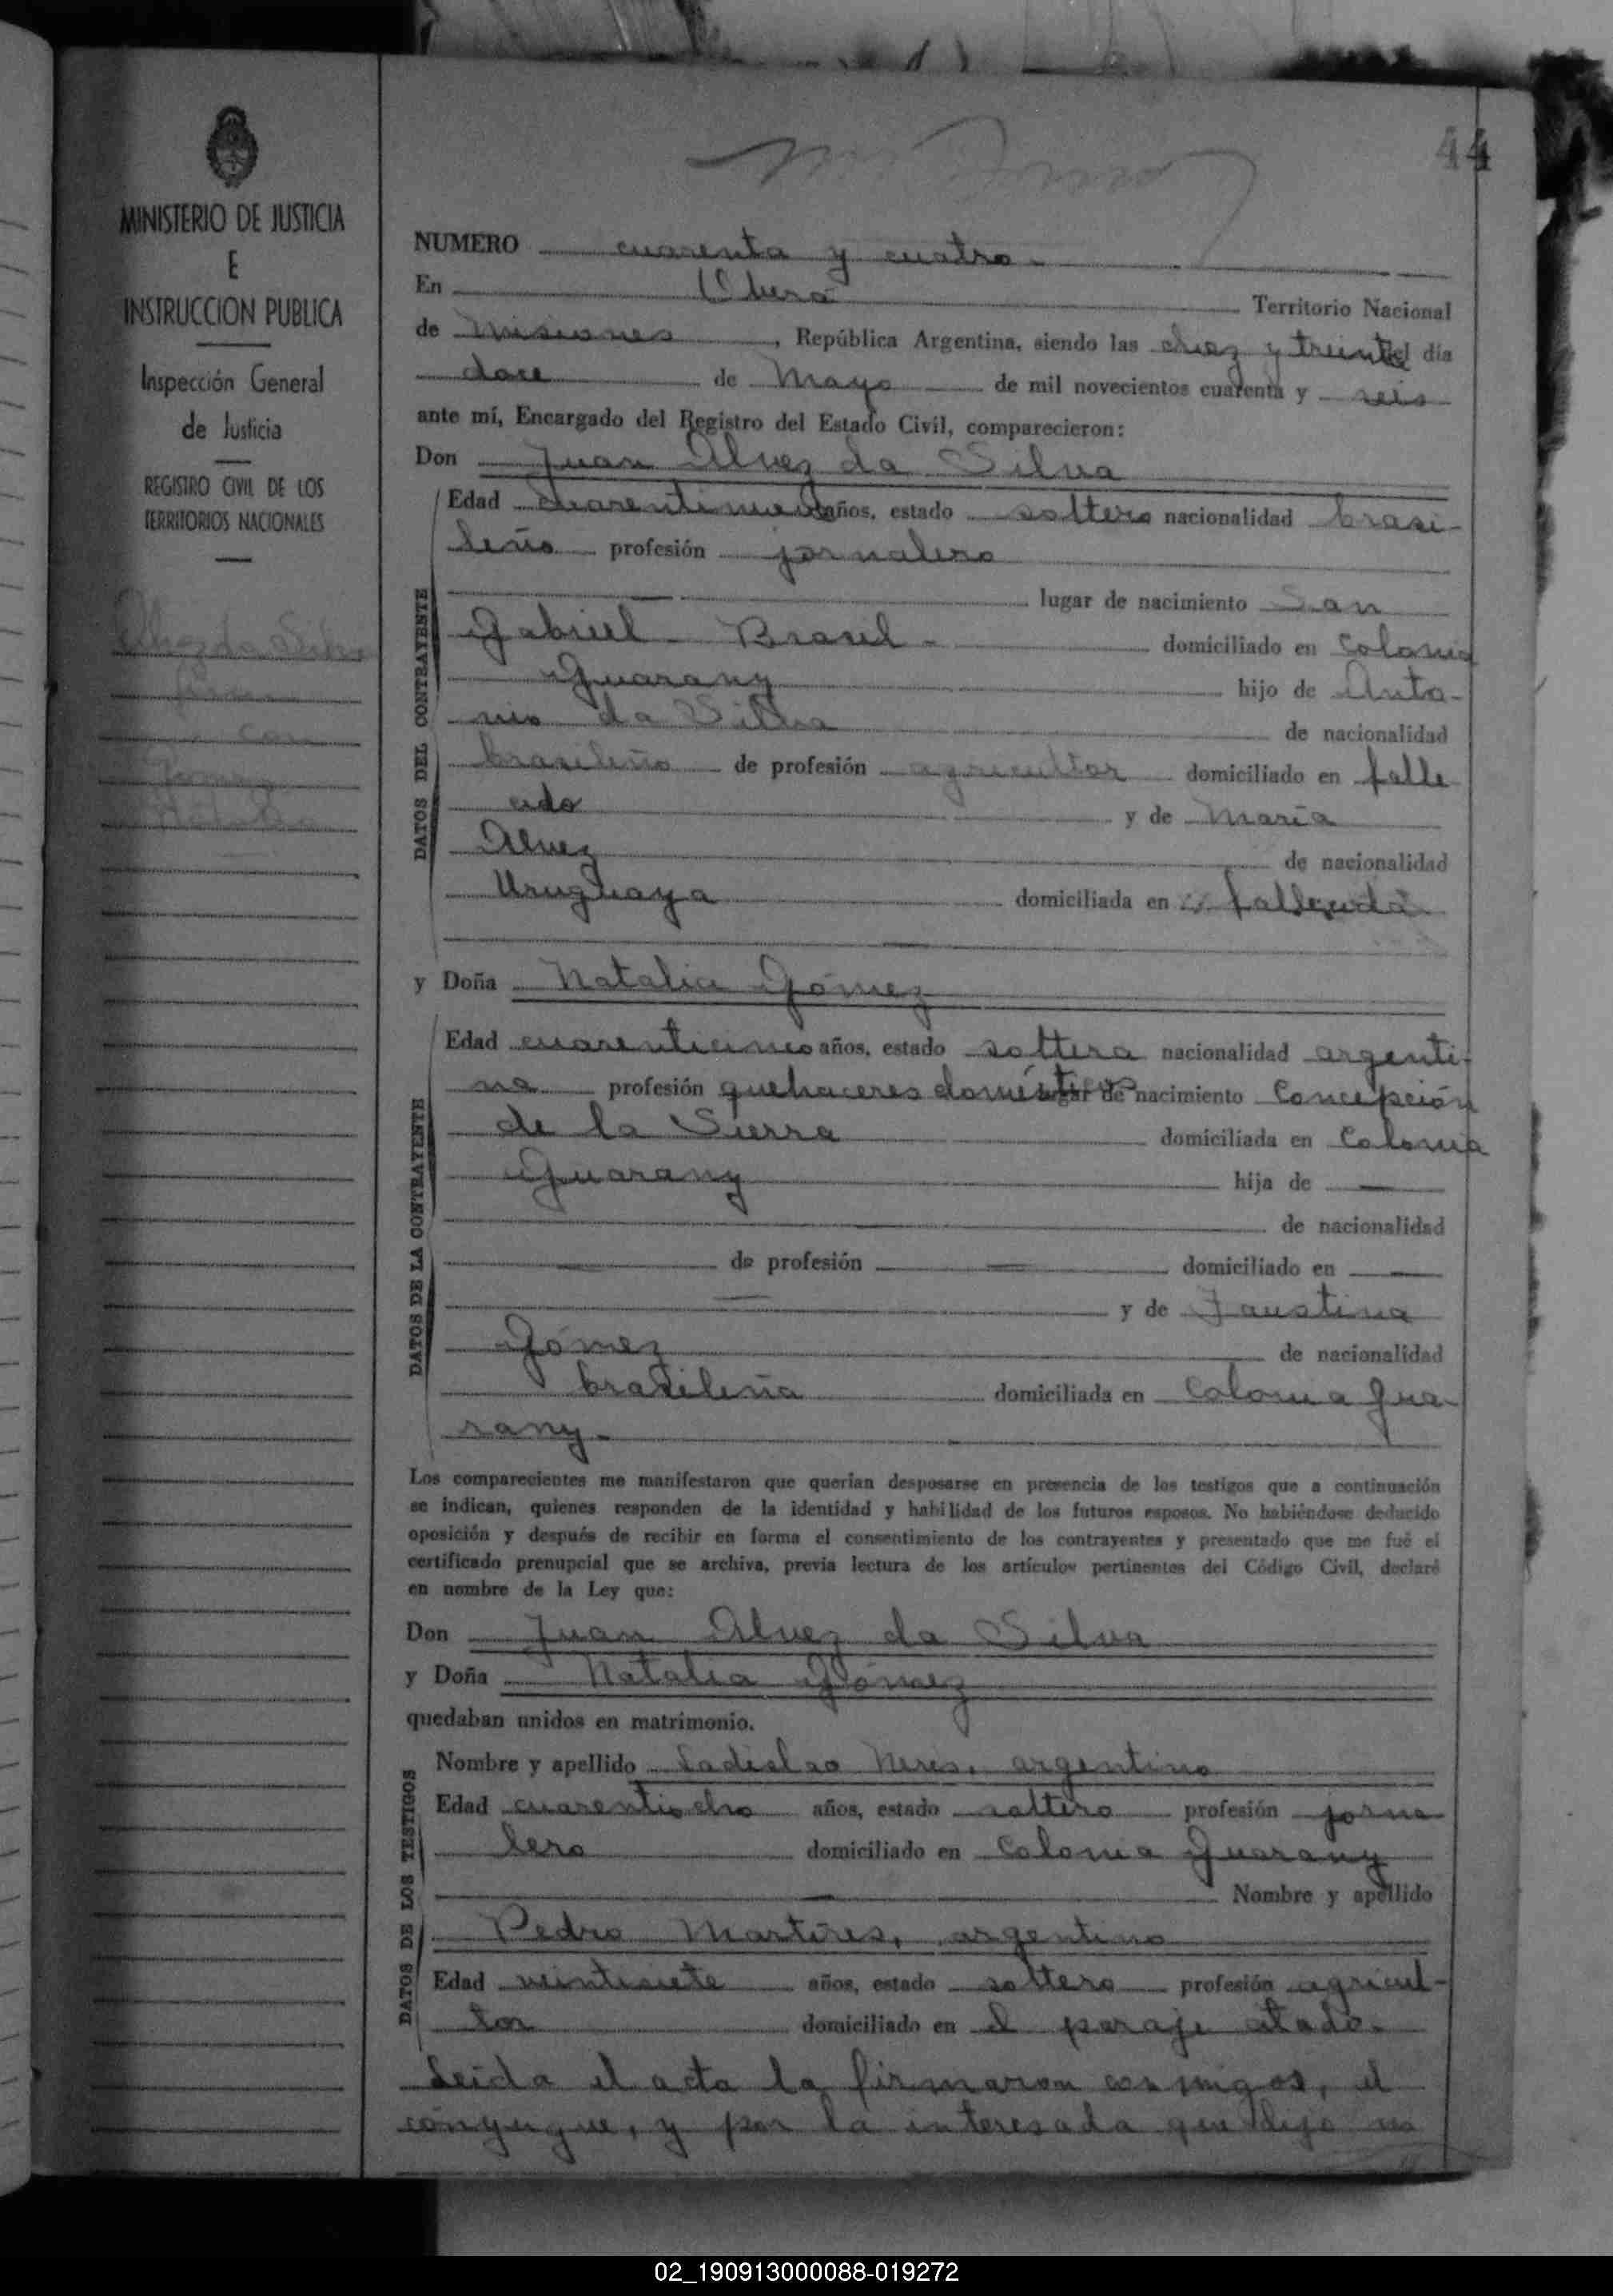 44
MINISTERIO DE JUSTICIA
E
INSTRUCCION PUBLICA
Inspección General
de Justicia
REGISTRO CIVIL DE LOS
TERRITORIOS NACIONALES
Alvez da Silva
Juan
con
Gómez
Natalia
NUMERO cuarenta y cuatro.
En Oberá Territorio Nacional
de Misiones, República Argentina, siendo las diez y treinta del día
doce de Mayo de mil novecientos cuarenta y seis
ante mí, Encargado del Registro del Estado Civil, comparecieron:
Don Juan Alvez da Silva
DATOS DEL CONTRAYENTE
Edad años, estado soltero nacionalidad brasi-
leño profesión jornalero
lugar de nacimiento San
Gabriel - Brasil - domiciliado en Colonia
Guarany hijo de Anto-
nio da Silva de nacionalidad
brasileño de profesión agricultor domiciliado en falle
cido y de María
Alvez de nacionalidad
Uruguaya domiciliada en fallecida
y Doña Natalia Gómez
DATOS DE LA CONTRAYENTE
Edad cuarenticinco años, estado soltera nacionalidad argenti-
na profesión quehaceres domésticos lugar de nacimiento Concepción
de la Sierra domiciliada en Colonia
Guarany hija de —
de nacionalidad
— de profesión — domiciliado en —
— y de Faustina
Gómez de nacionalidad
brasileña domiciliada en Colonia Gua-
rany.
Los comparecientes me manifestaron que querian desposarse en presencia de los testigos que a continuación
se indican, quienes responden de la identidad y habilidad de los futuros esposos. No habiéndose deducido
oposición y después de recibir en forma el consentimiento de los contrayentes y presentado que me fué el
certificado prenupcial que se archiva, previa lectura de los artículos pertinentes del Código Civil, declaré
en nombre de la Ley que:
Don Juan Alvez da Silva
y Doña Natalia Gómez
quedaban unidos en matrimonio.
DATOS DE LOS TESTIGOS
Nombre y apellido Ladislao Neris, argentino
Edad cuarentiocho años, estado soltero profesión jorna
lero domiciliado en Colonia Guarany
Nombre y apellido
Pedro Martires, argentino
Edad veintisiete años, estado soltero profesión agricul-
tor domiciliado en el paraje citado.
Leída el acta la firmaron conmigo, el
cónyugue, y por la interesada que dijo no
02_190913000088-019272